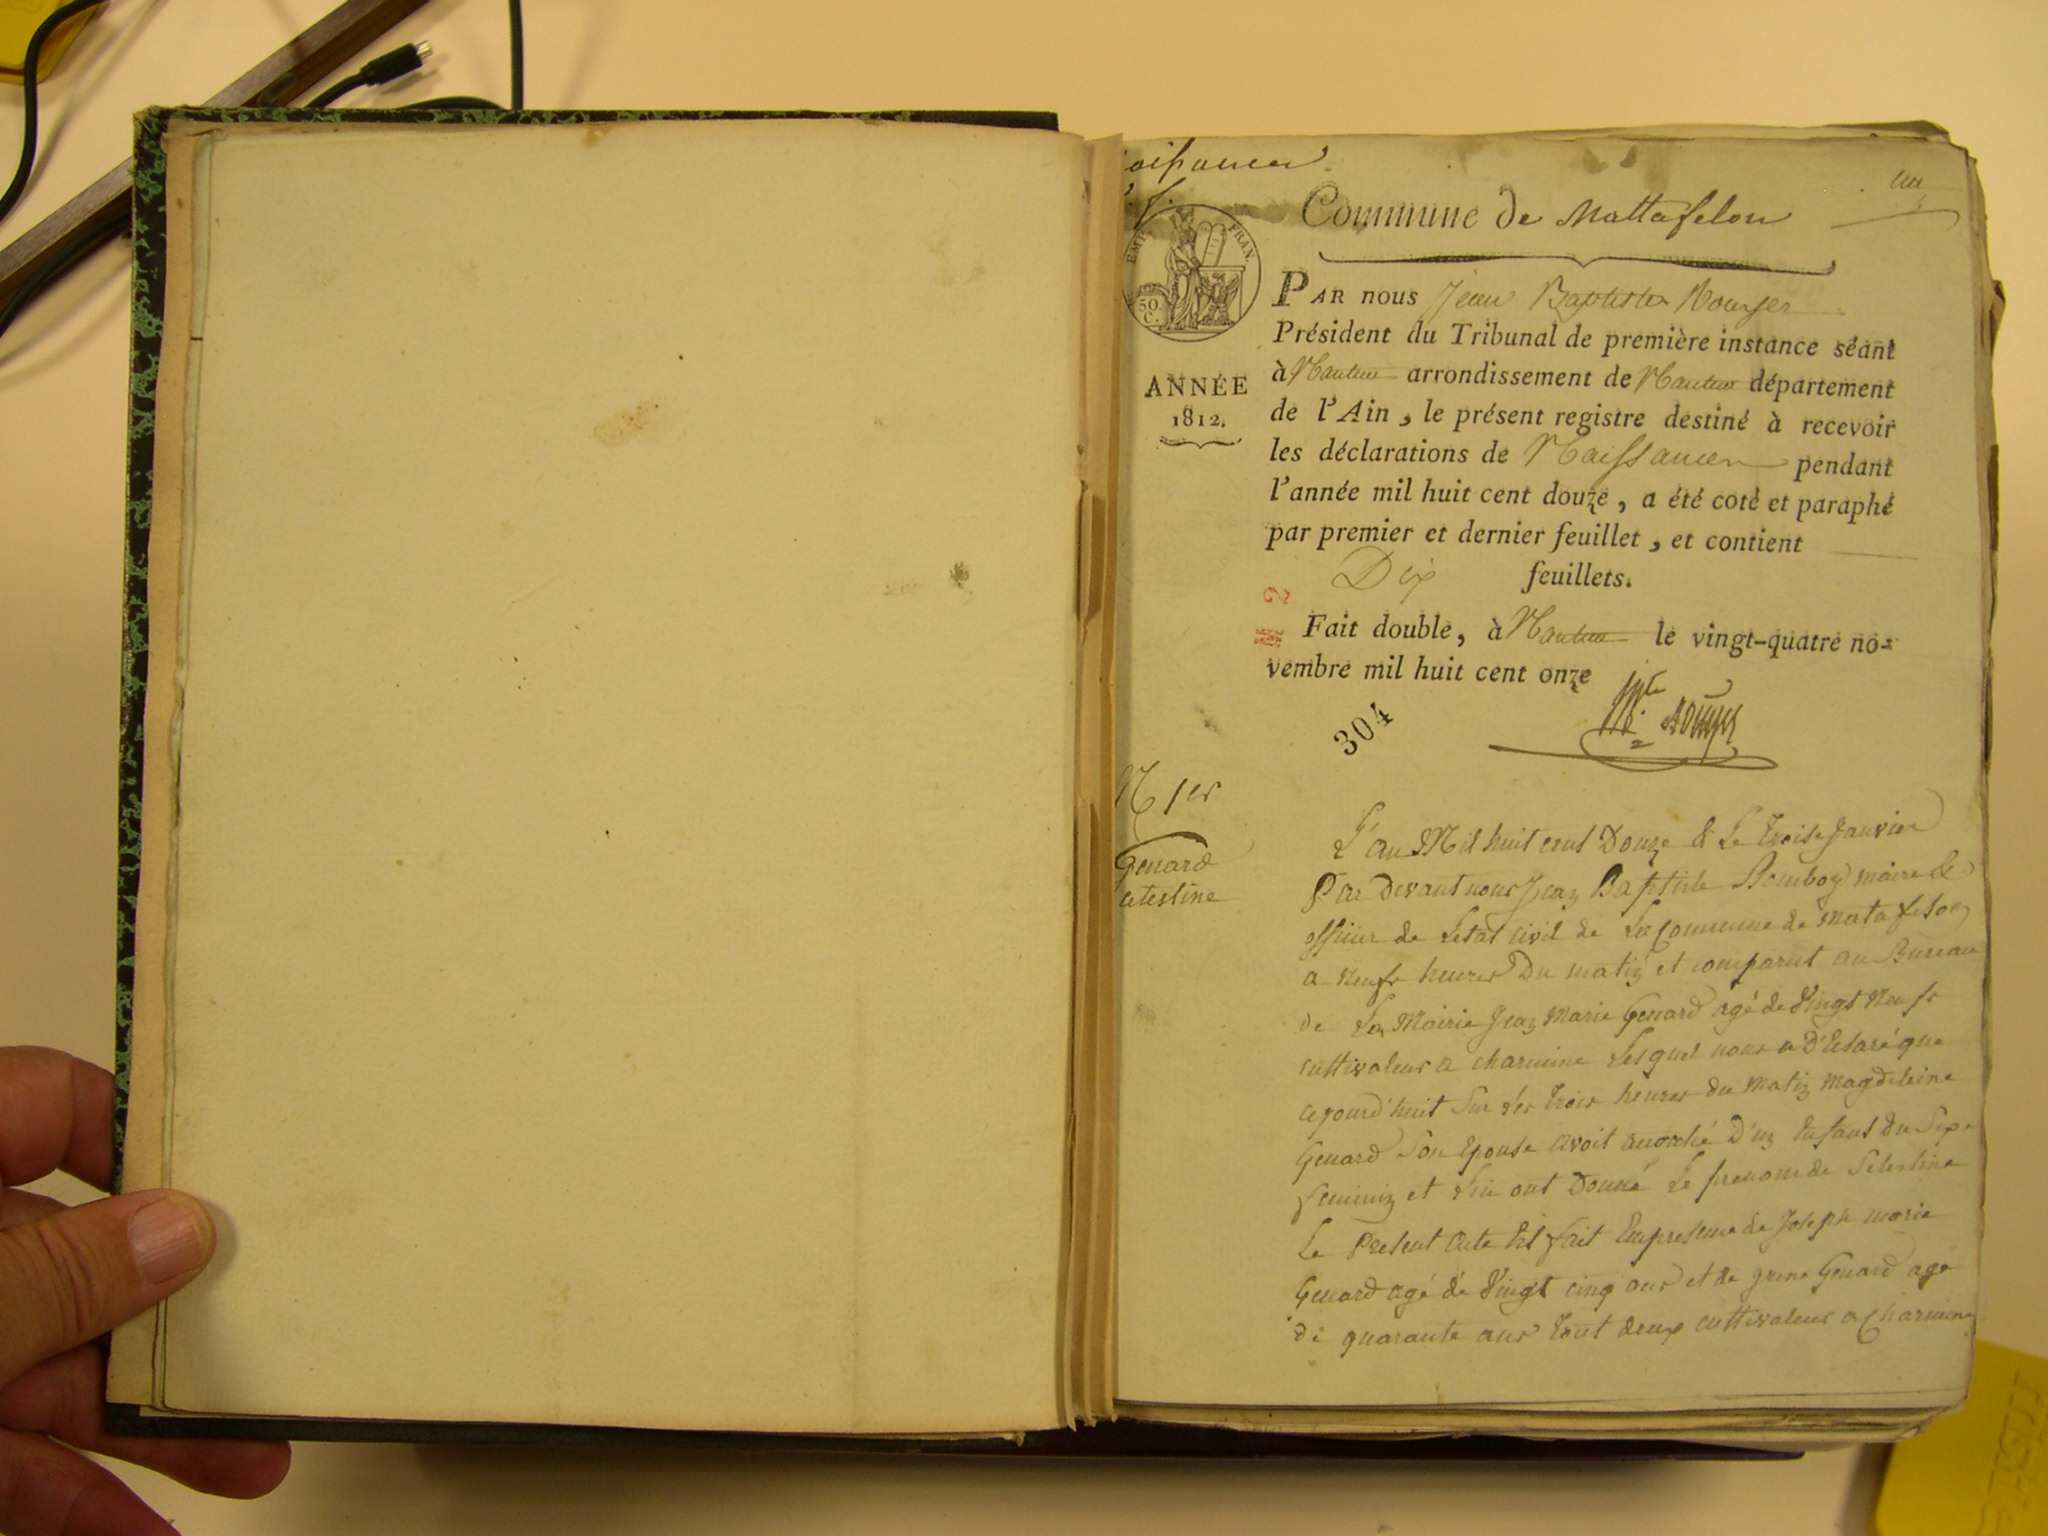 Naissances
un
Commune de Mattafelon
EMP. FRAN.
50 C.
ANNÉE
1812.
PAR NOUS Jean Baptiste Rouyer
Président du Tribunal de première instance séant
à Nantua arrondissement de Nantua département
de l'Ain, le présent registre destiné à recevoir
les déclarations de Naissances pendant
l'année mil huit cent douze, a été coté et paraphé
par premier et dernier feuillet, et contient
Dix feuillets.
Fait double, à Nantua le vingt-quatre no-
vembre mil huit cent onze
304
N 1er
Genard
celestine
L'an Mil huit cent Douze & Le trois Janvier
Par Devant nous Jean Baptiste maire &
officier de Letat civil de La Commune de matafelon
a neufs heures Du matin et comparut au Bureau
de La Mairie Jean Marie Genard agé de Vingt Neufs
cultivateur a charmine Lesquel nous a D'Eclaré que
cejourd'huit Sur Les trois heures du Matin Magdeleine
Genard Son Epouse avoit acouché D'un Enfant du Sexe
feminin et Lui ont Donné Le prenom de Selestine
Le Present acte Est fait En presence de Joseph marie
Genard agé de Vingt cinq ans et de Genard agé
de quarante ans tout deux cultivateur a Charmine